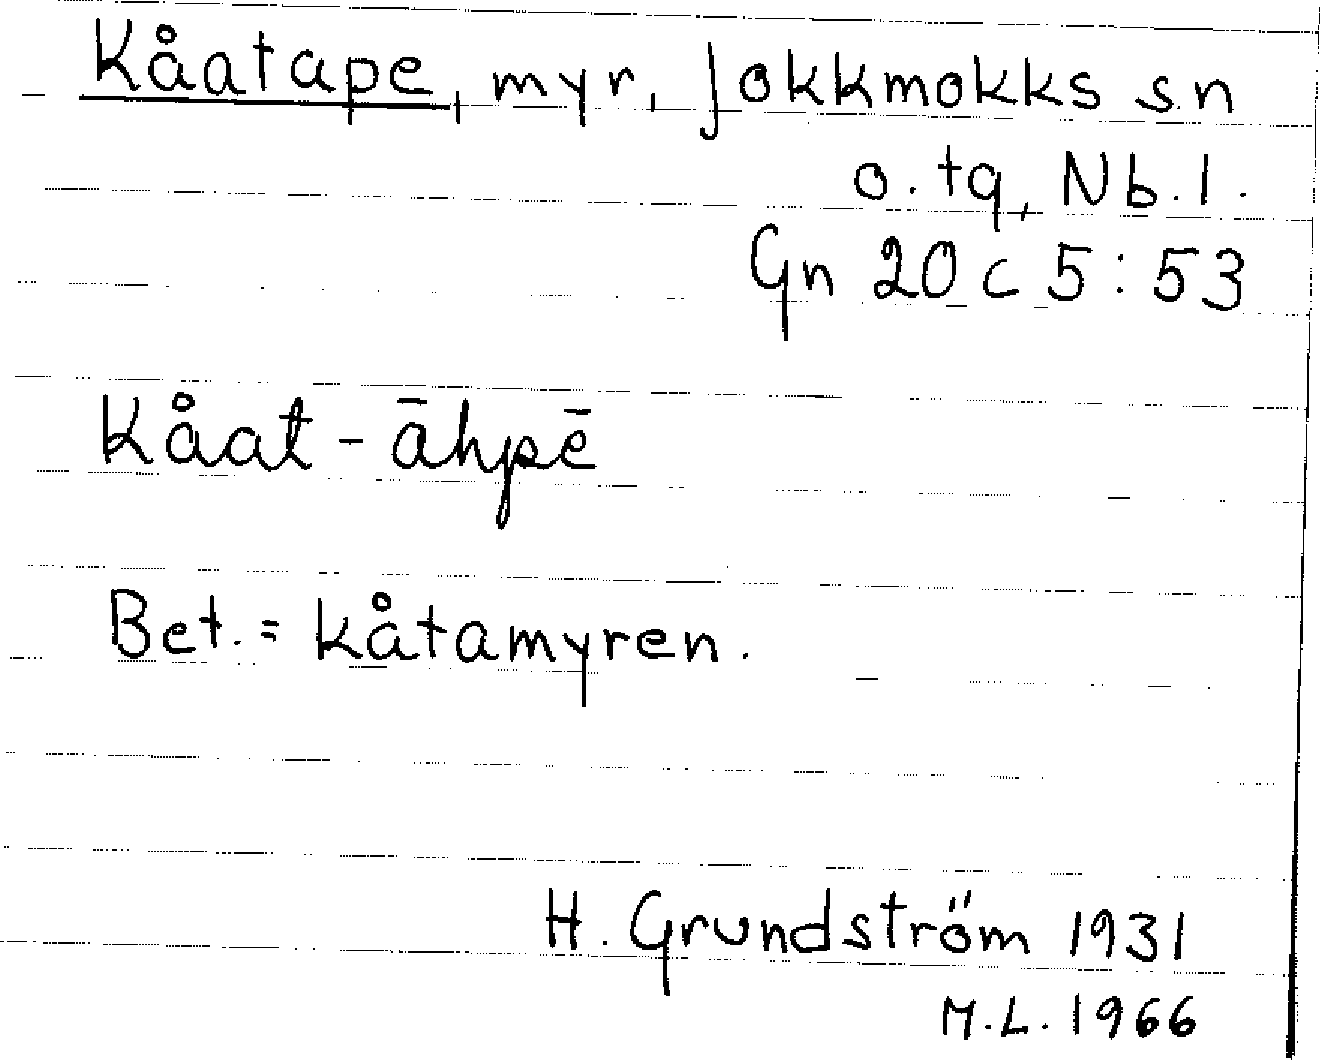 Kåatape, myr, Jokkmokks sn
o. tg, Nb. l.
Gn 20 c 5:53
Kåat-āhpē
Bet. = kåtamyren.
H. Grundström 1931
M.L. 1966